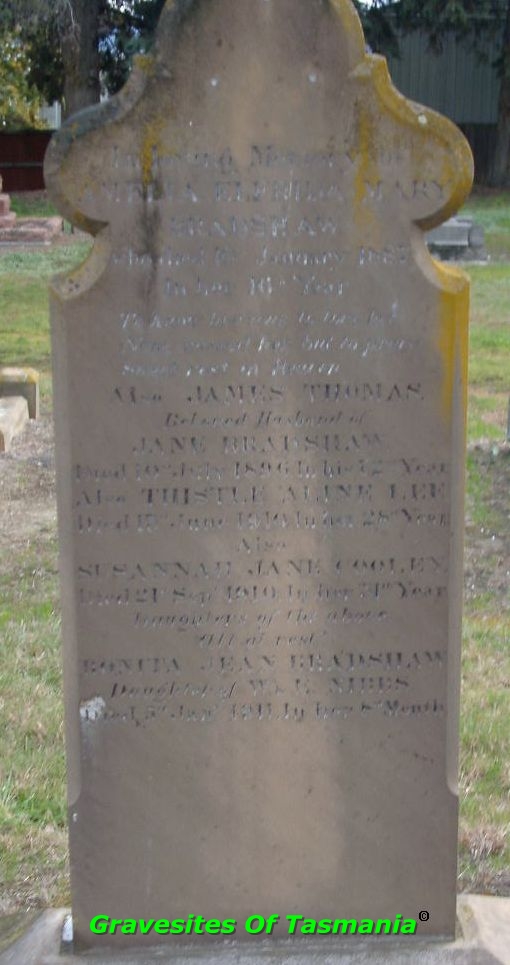 In Loving Memory of
ELFRIDA MARY
BRADSHAW
January
In her 16th Year
To
but to
rest in Heaven
Also JAMES THOMAS
Beloved Husband of
JANE BRADSHAW
Died 10th July 1896 In his Year
Also THISTLE ALINE LEE
Died June 1910 In her 28th Year
Also
SUSANNAH JANE COOLEY
Died 21st Sept 1910 In her 31st Year
Daughters of the above
"All at rest"
BONITA JEAN BRADSHAW
Daughter of NIBBS
Died 5th Jany 1911 In her 8th Month
Gravesites Of Tasmania©